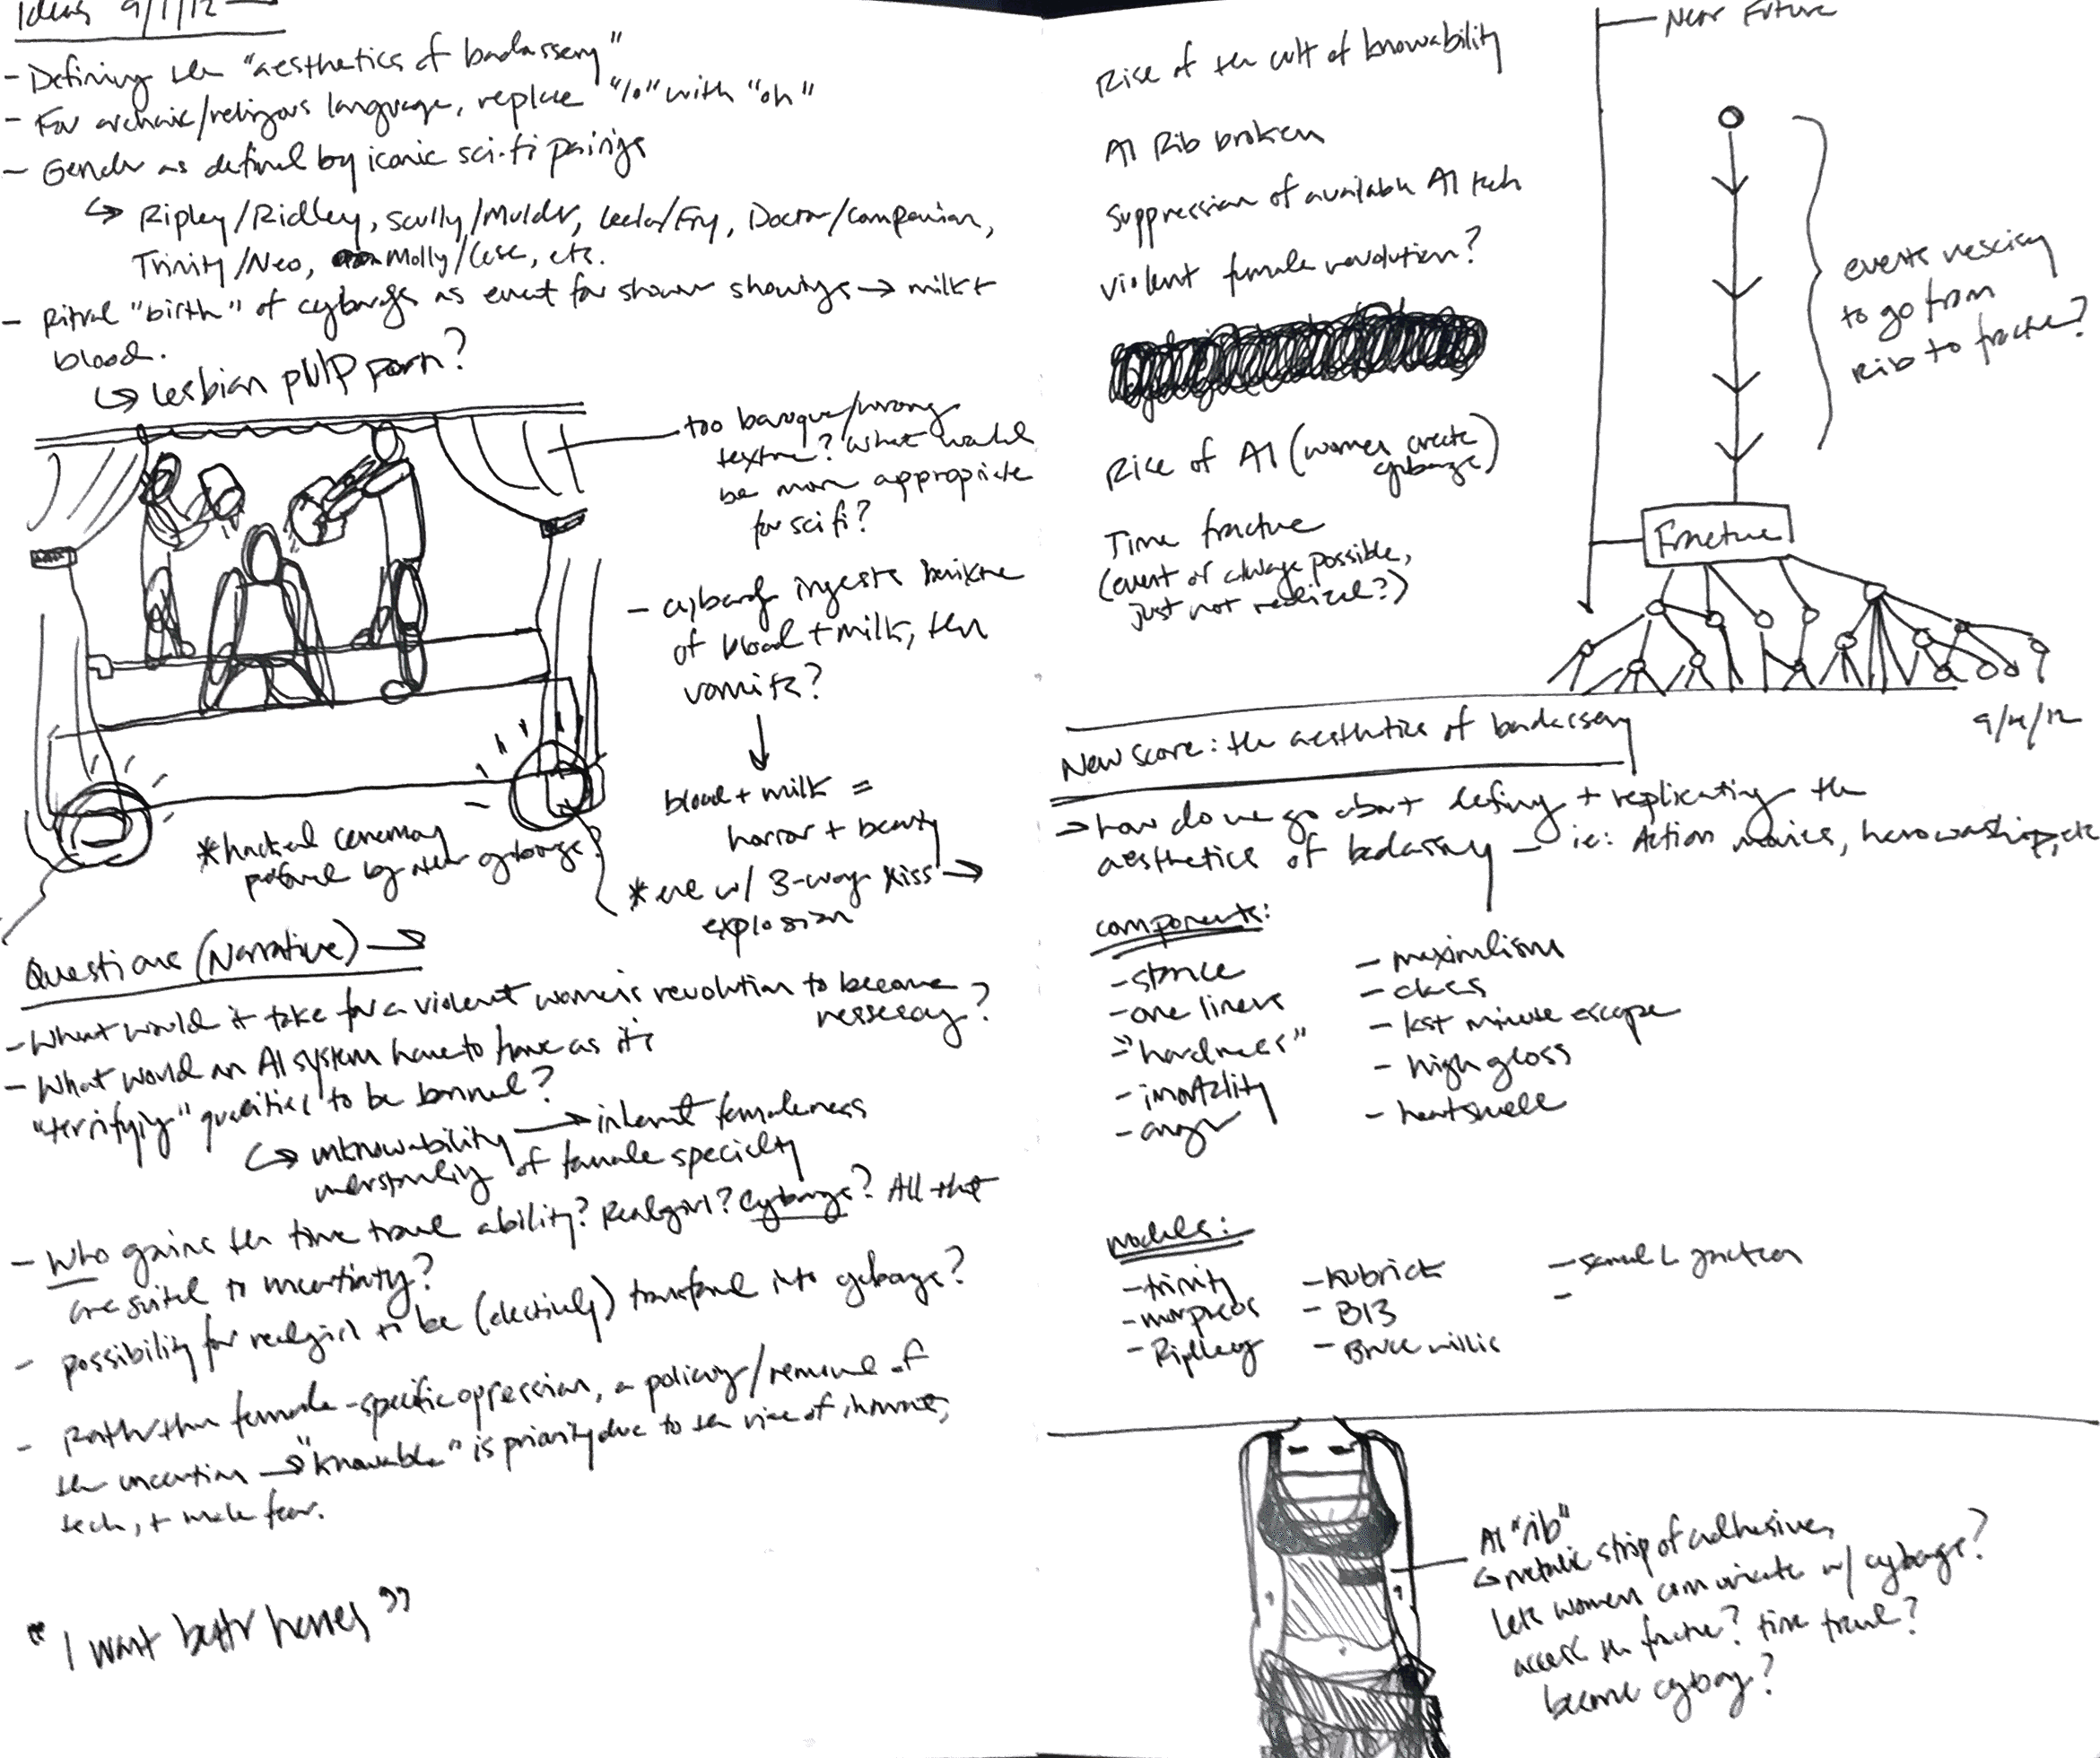 Ideas 9/1/12
- Defining the "aesthetics of badassery"
- For archaic/religious language, replace "lo" with "oh"
- Gender as defined by iconic sci-fi pairings
↳ Ripley/Ridley, Scully/Mulder, Leela/Fry, Doctor/companion,
Trinity/Neo, Molly/Case, etc.
- Ritual "birth" of cyborgs as event for shower showings → milk +
blood.
↳ lesbian pulp porn?
too baroque/wrong
texture? What would
be more appropriate
for sci fi?
- cyborg ingests
of blood + milk, then
vomits?
↓
blood + milk =
horror + beauty
* end w/ 3-way kiss →
explosion
* hacked ceremony
performed by other cyborgs?
Questions (Narrative) →
- What would it take for a violent women's revolution to become
nessesay?
- What would an AI system have to have as it's
"terrifying" qualities to be banned?
↳ unknowability → inherent femaleness
of female specielty
- Who gains the time travel ability? Realgirl? Cyborgs? All that
are suited to uncertinty?
- possibility for realgirl to be (electively) transformed into cyborgs?
- Rather than female-specific opression, a policy/removal of
the uncertian → "knowable" is priority due to the rise of internet,
tech, + male fear.
"I want better heroes"
Rise of the cult of knowability
AI Rib broken
suppression of available AI tech
violent female revolution?
Rise of AI (women create
cyborgs)
Time fracture
(event or always possible,
just not realized?)
Near Future
events nessciary
to go from
Rib to fracture?
Fracture
9/4/12
New score: the aesthetics of badassery
→ how do we go about defing + replicating the
aesthetics of badassery — ie: Action movies, hero worship, etc
components:
- stance
- one liners
- "hardness"
- imortality
- anger
- maximlism
- class
- last minute escape
- high gloss
- heatswell
models:
- trinity
- morpheos
- Ripley
- Kubrick
- B13
- Bruce willis
- samuel L jackson
-
AI "rib"
↳ metalic strip of adhesive,
lets women comunicate w/ cyborgs?
access the fracture? time travel?
become cyborg?